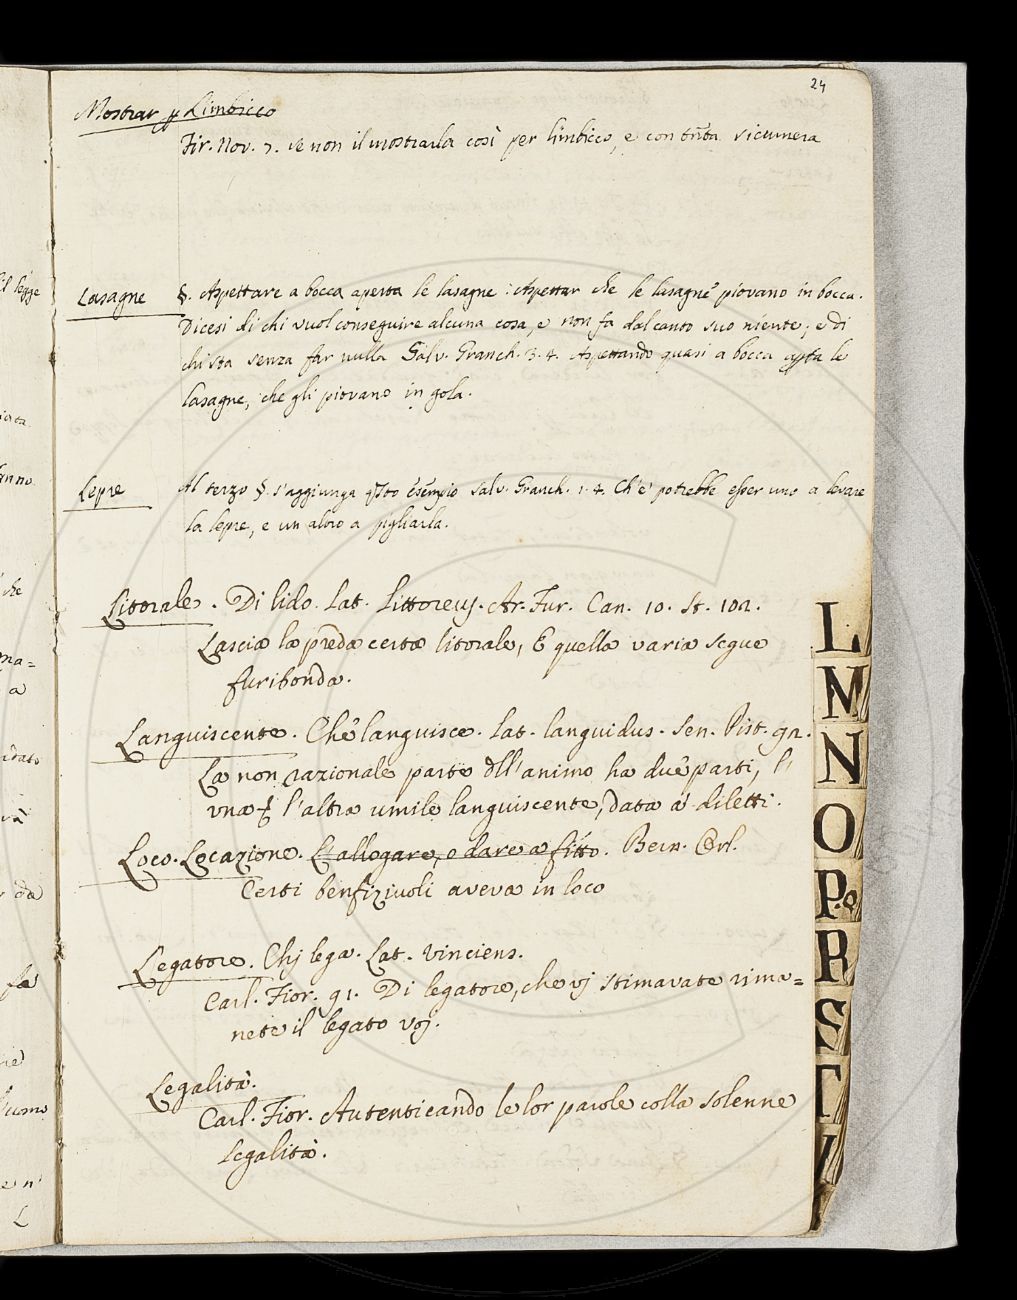 24
Mostrar p Limbicco
Fir. Nov. 7. se non il mostrarla così per limbicco, e con tñta sicumera
Lasagne §. Aspettare a bocca aperta le lasagne: Aspettar che le lasagne piovano in bocca.
Dicesi di chi vuol conseguire alcuna cosa, e non fa dal canto suo niente; e di
chi sta senza far nulla Salv. Granch. 3. 4. Aspettando quasi a bocca apta le
lasagne, che gli piovano in gola.
Lepre Al terzo §. s'aggiunga qsto esempio Salv. Granch. 1. 4. Ch'e' potrebbe esser uno a levare
la lepre, e un altro a pigliarla.
Litorale. Di lido. Lat. Littoreus. Ar. Fur. Can. 10. St. 102.
Lascia la preda certa litorale, E quella varia segue
furibonda.
Languiscente. Che languisce. Lat. languidus. Sen. Pist. 92.
La non razionale parte dll'animo ha due parti, l'
vna l'altra umile languiscente, data a' diletti.
Loco. Locazione. L'allogare, o dare a fitto. Bern. Orl.
Certi benfizivoli aveva in loco
Legatore. Chi lega. Lat. Vinciens.
Carl. Fior. 91. Di legatore, che vj stimavate rima=
nete il legato voj.
Legalità.
Carl. Fior. Autenticando le lor parole colla solenne
legalità.
L
M
N
O
P.Q
R
S
T
V